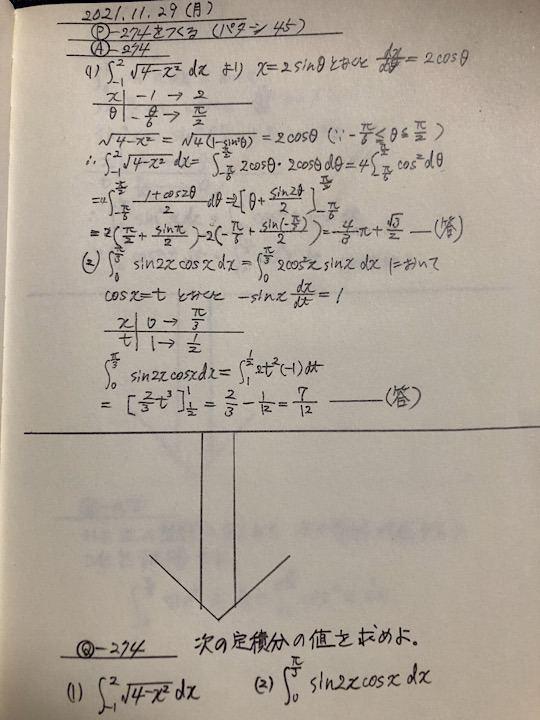 2021.11.29(月)
Ⓟ-274をつくる (パターン45)
Ⓐ-274
(1) ∫_{-1}^{2} √(4-x²) dx より x=2sinθとおくと dx/dθ=2cosθ
x | -1 → 2
θ | -π/6 → π/2
√(4-x²) = √(4(1-sin²θ)) = 2cosθ (∵ -π/6 ≦ θ ≦ π/2)
∴ ∫_{-1}^{2} √(4-x²) dx = ∫_{-π/6}^{π/2} 2cosθ・2cosθ dθ = 4∫_{-π/6}^{π/2} cos²dθ
=4∫_{-π/6}^{π/2} (1+cos2θ)/2 dθ =2[θ+sin2θ/2]_{-π/6}^{π/2}
=2(π/2+sinπ/2)-2(-π/6+sin(-π/3)/2)=4/3・π+√3/2 —(答)
(2) ∫_{0}^{π/3} sin2x cosx dx = ∫_{0}^{π/3} 2cos²x sinx dx において
cosx=t とおくと -sinx dx/dt = 1
x | 0 → π/3
t | 1 → 1/2
∫_{0}^{π/3} sin2x cosx dx = ∫_{1}^{1/2} 2t²(-1)dt
= [2/3 t³]_{1/2}^{1} = 2/3 - 1/12 = 7/12 —(答)
Ⓠ-274 次の定積分の値を求めよ。
(1) ∫_{-1}^{2} √(4-x²) dx (2) ∫_{0}^{π/3} sin2x cosx dx